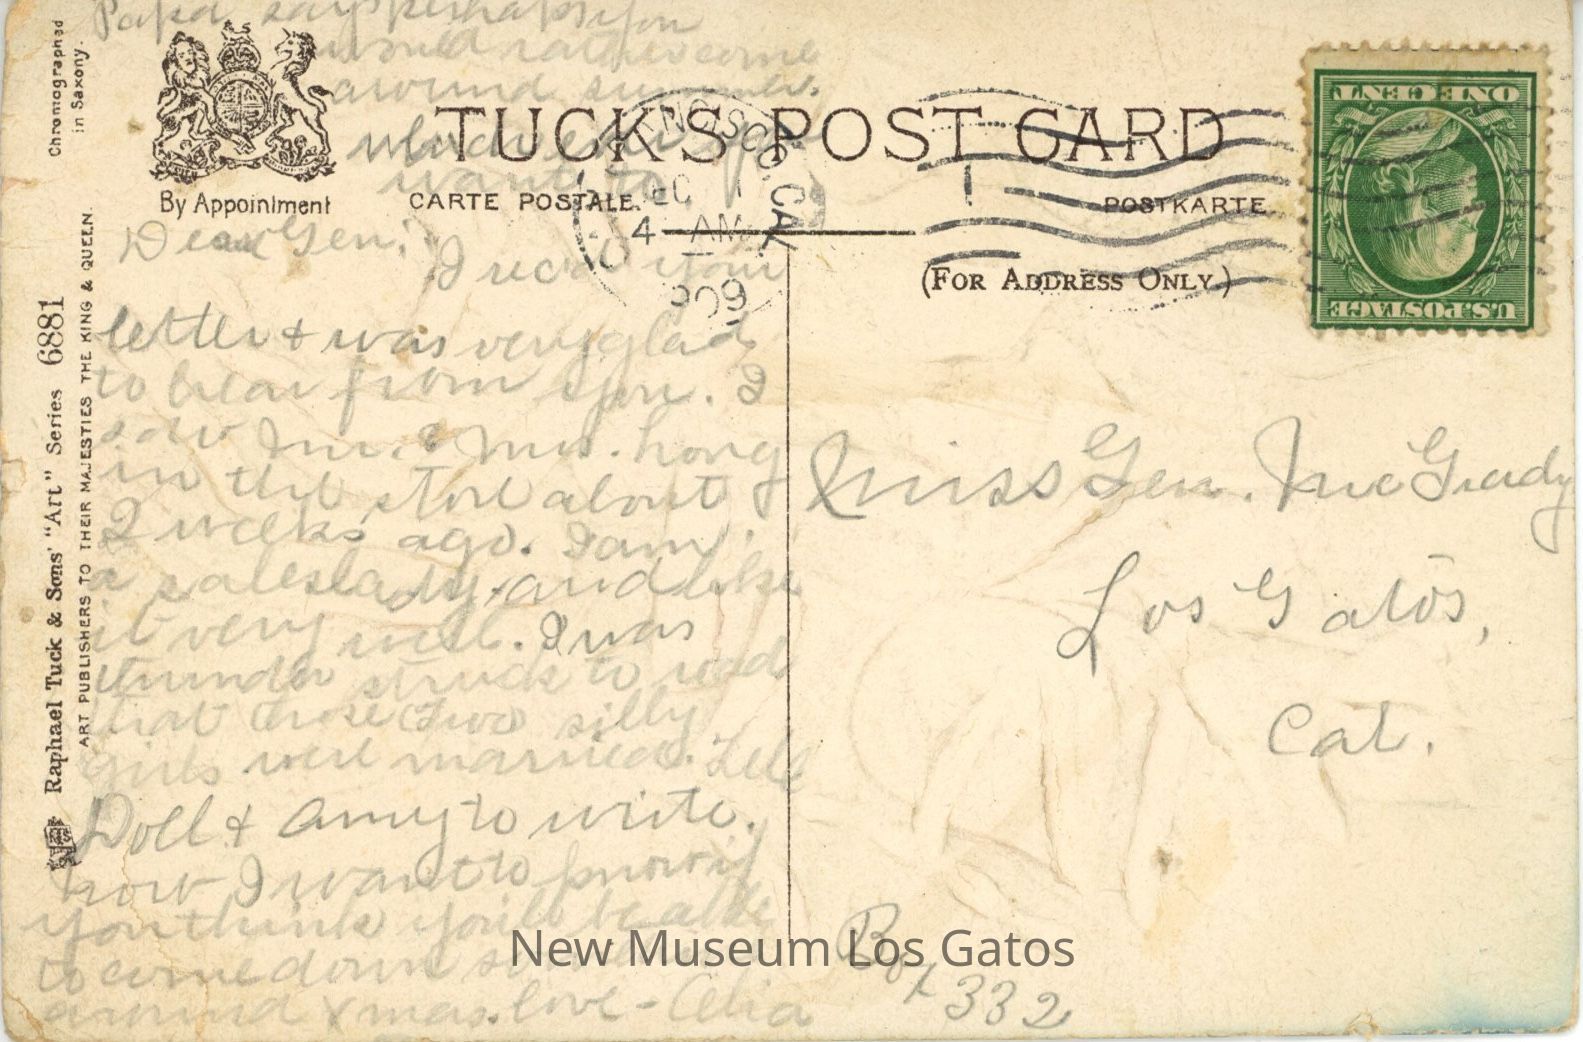 Papa says perhaps you
would rather come
around summer.
when
want to
Chromographed
in Saxony.
By Appointment
TUCK'S POST CARD
CARTE POSTALE.
POSTKARTE
(FOR ADDRESS ONLY.)
KINGS CO. CAL
DEC 1
4 - AM
1909
ONE CENT
U.S. POSTAGE
Raphael Tuck & Sons' "Art" Series 6881
ART PUBLISHERS TO THEIR MAJESTIES THE KING & QUEEN.
Dear Gen.
I recd your
letter & was very glad
to hear from you. I
saw Mr. & Mrs. Long
in the store about
2 weeks ago. I am
a saleslady, and like
it very well. I was
thunder struck to read
that those two silly
girls were married. Tell
Doll & Amy to write.
now I want to know if
you think you'll be able
to come down
around Xmas. love - Celia
Miss Gen. McGrady
Los Gatos,
Cal.
Box 332
New Museum Los Gatos